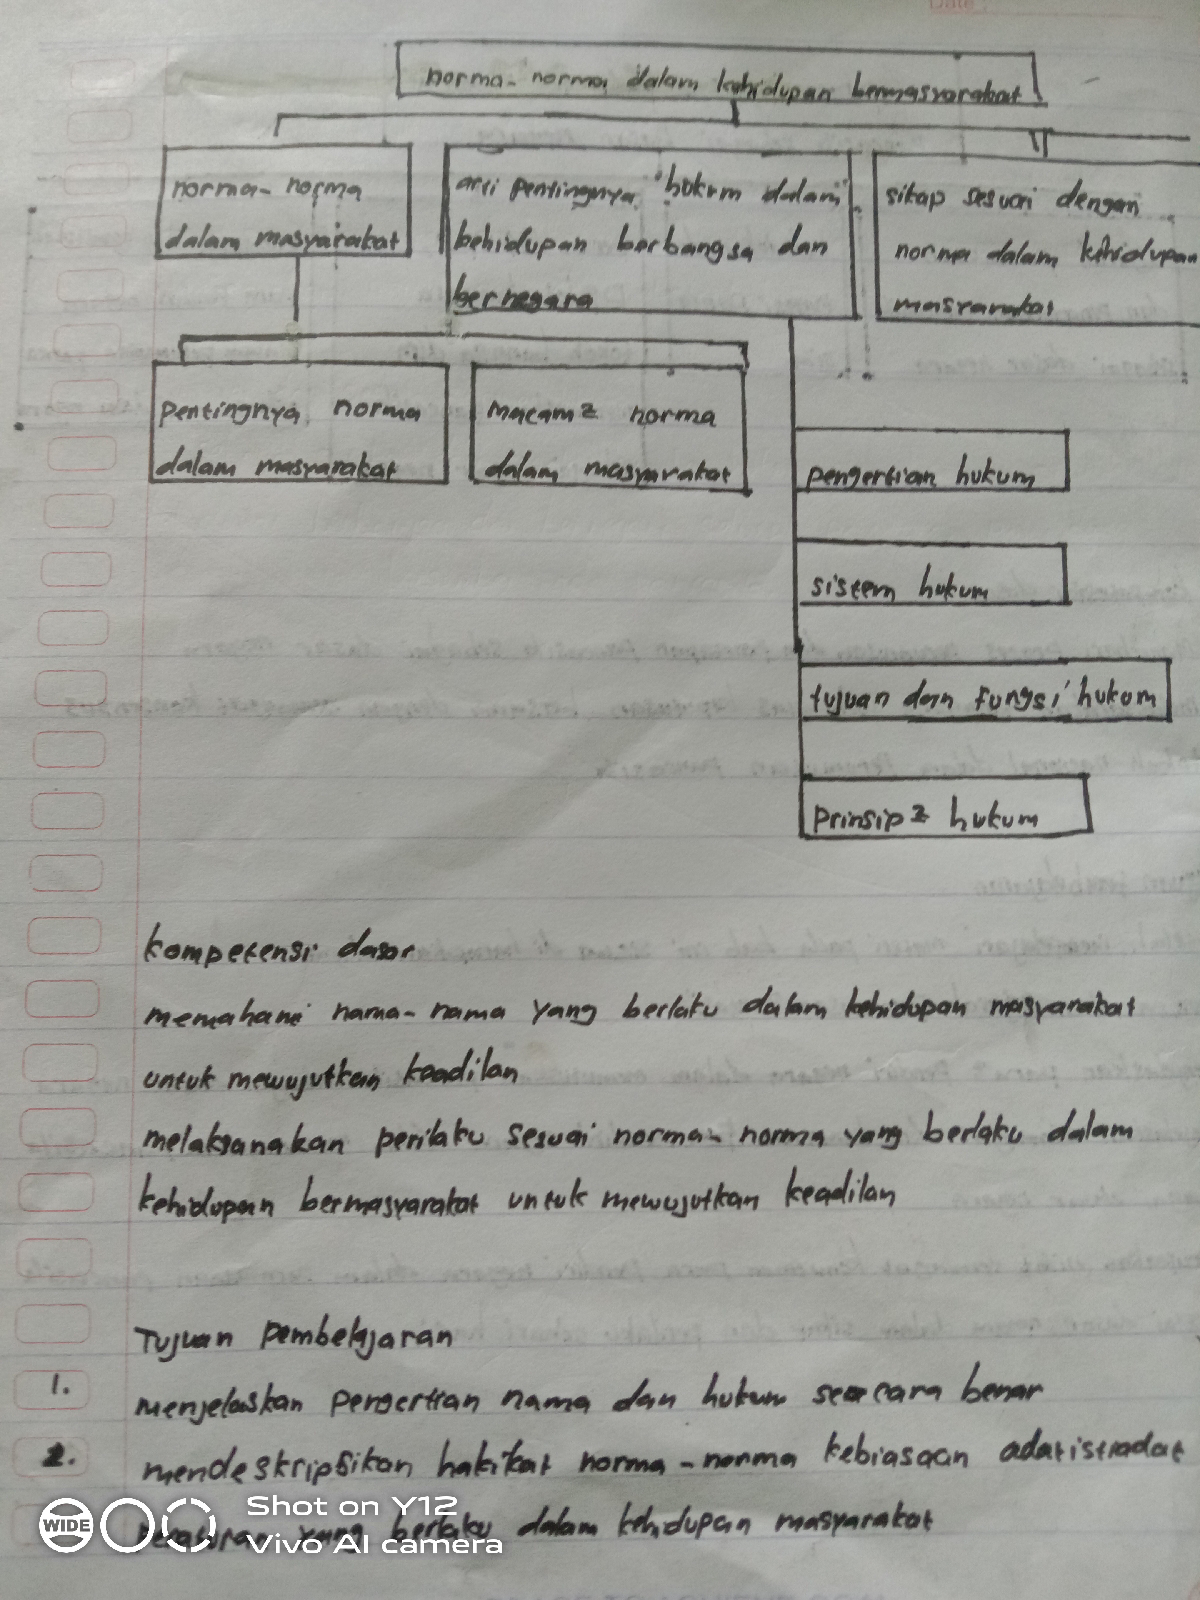 norma-norma dalam kehidupan bermasyarakat
norma-norma
dalam masyarakat
arti pentingnya hukum dalam
behidupan berbangsa dan
bernegara
sikap sesuai dengan
norma dalam kehidupan
masyarakat
pentingnya norma
dalam masyarakat
macam2 norma
dalam masyarakat
pengertian hukum
sistem hukum
tujuan dan fungsi hukum
prinsip2 hukum
kompetensi dasar
memahami nama-nama yang berlaku dalam kehidupan masyarakat
untuk mewujutkan keadilan
melaksanakan perilaku sesuai norma-norma yang berlaku dalam
kehidupan bermasyarakat untuk mewujutkan keadilan
Tujuan pembelajaran
1. menjelaskan pengertian nama dan hukum secara benar
2. mendeskripsikan hakikat norma-norma kebiasaan adatistiadat
peraturan yang berlaku dalam kehidupan masyarakat
WIDE
Shot on Y12
Vivo AI camera